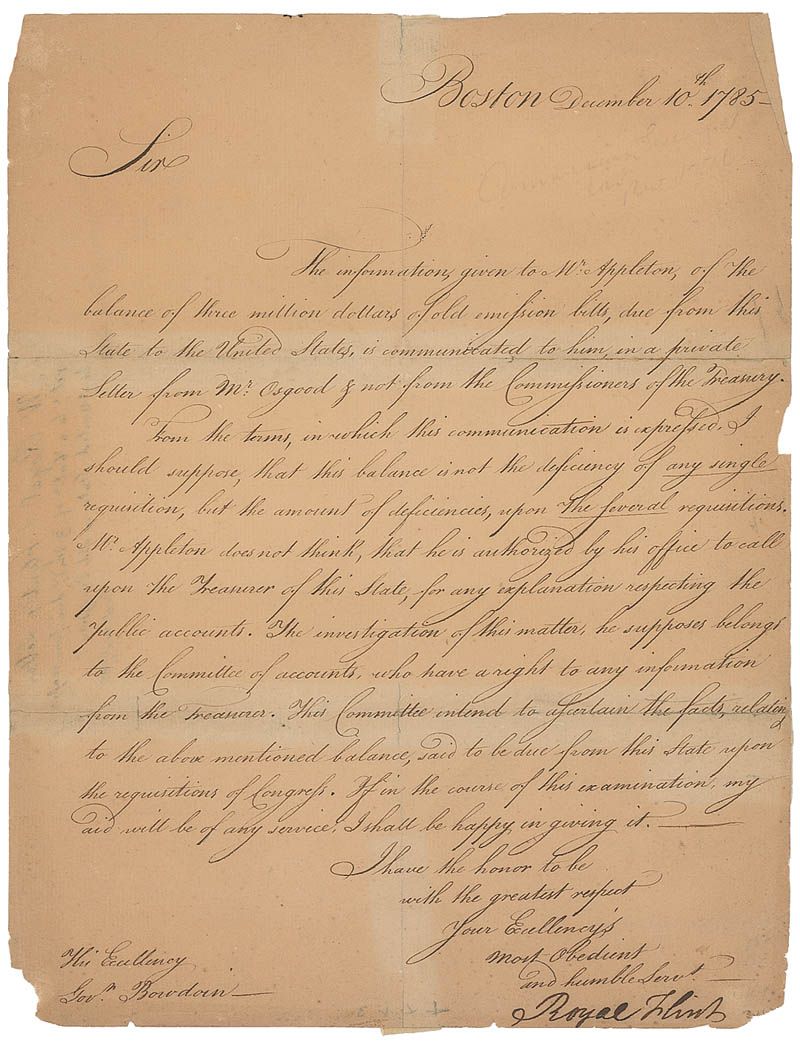 Boston December 10th. 1785
Sir
The information, given to Mr. Appleton, of the
balance of three million dollars of old emission bills, due from this
State to the United States, is communicated to him, in a private
Letter from Mr. Osgood & not from the Commissioners of the Treasury.
From the terms, in which this communication is expressed, I
should suppose, that this balance is not the deficiency of any single
requisition, but the amount of deficiencies, upon the several requisitions.
Mr. Appleton does not think, that he is authorized by his office to call
upon the Treasurer of this State, for any explanation respecting the
public accounts. The investigation of this matter, he supposes belongs
to the Committee of accounts, who have a right to any information
from the Treasurer. This Committee intend to ascertain the facts, relating
to the above mentioned balance, said to be due from this State upon
the requisitions of Congress. If in the course of this examination, my
aid will be of any service, I shall be happy in giving it.
I have the honor to be
with the greatest respect
Your Excellency's
Most Obedient
and humble Servt
Royal Flint
His Excellency
Govr. Bowdoin